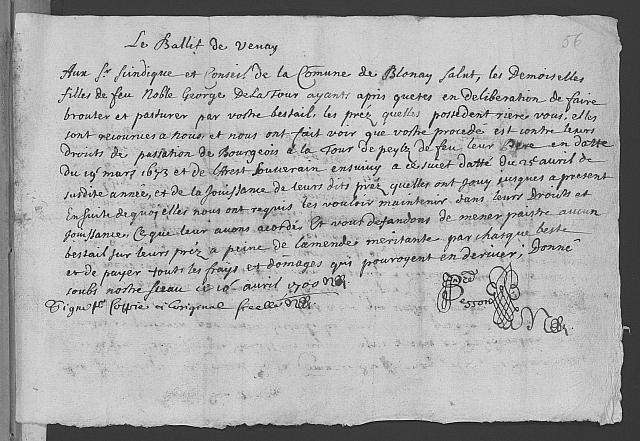 56
Le Ballif de Vevay
Aux Srs Sindique et Conseil de la Comune de Blonay Salut, les Demoiselles
filles de feu Noble George DelaTour ayants apris quetes en deliberation de faire
brouter et pasturer par vostre bestail les préz quelles possedent riere vous, elles
sont recourues a Nous et nous ont fait voir que vostre procedé est contre leurs
droits de passation de Bourgeois à la Tour de peylz de feu leur Pere en datte
du 19e mars 1673 et de L'arest Souverain ensuivy a ce sujet datté du 25e avril de
susdite année, et de la Jouissance de leurs dits préz quelles ont Jouy jusques a present
Ensuite dequoy elles nous ont requis les vouloir maintenir dans leurs Droits et
Jouissance, Ce que leur avons acordés Et vous defandons de mener paistre aucun
bestail sur leurs préz a peine de lamende meritante par chasque beste
et de payer tout les frays et domages qui pourroyent en deriver; Donné
soubs nostre seau ce avril 1700
Signé pr Coppie à l'original
Besson